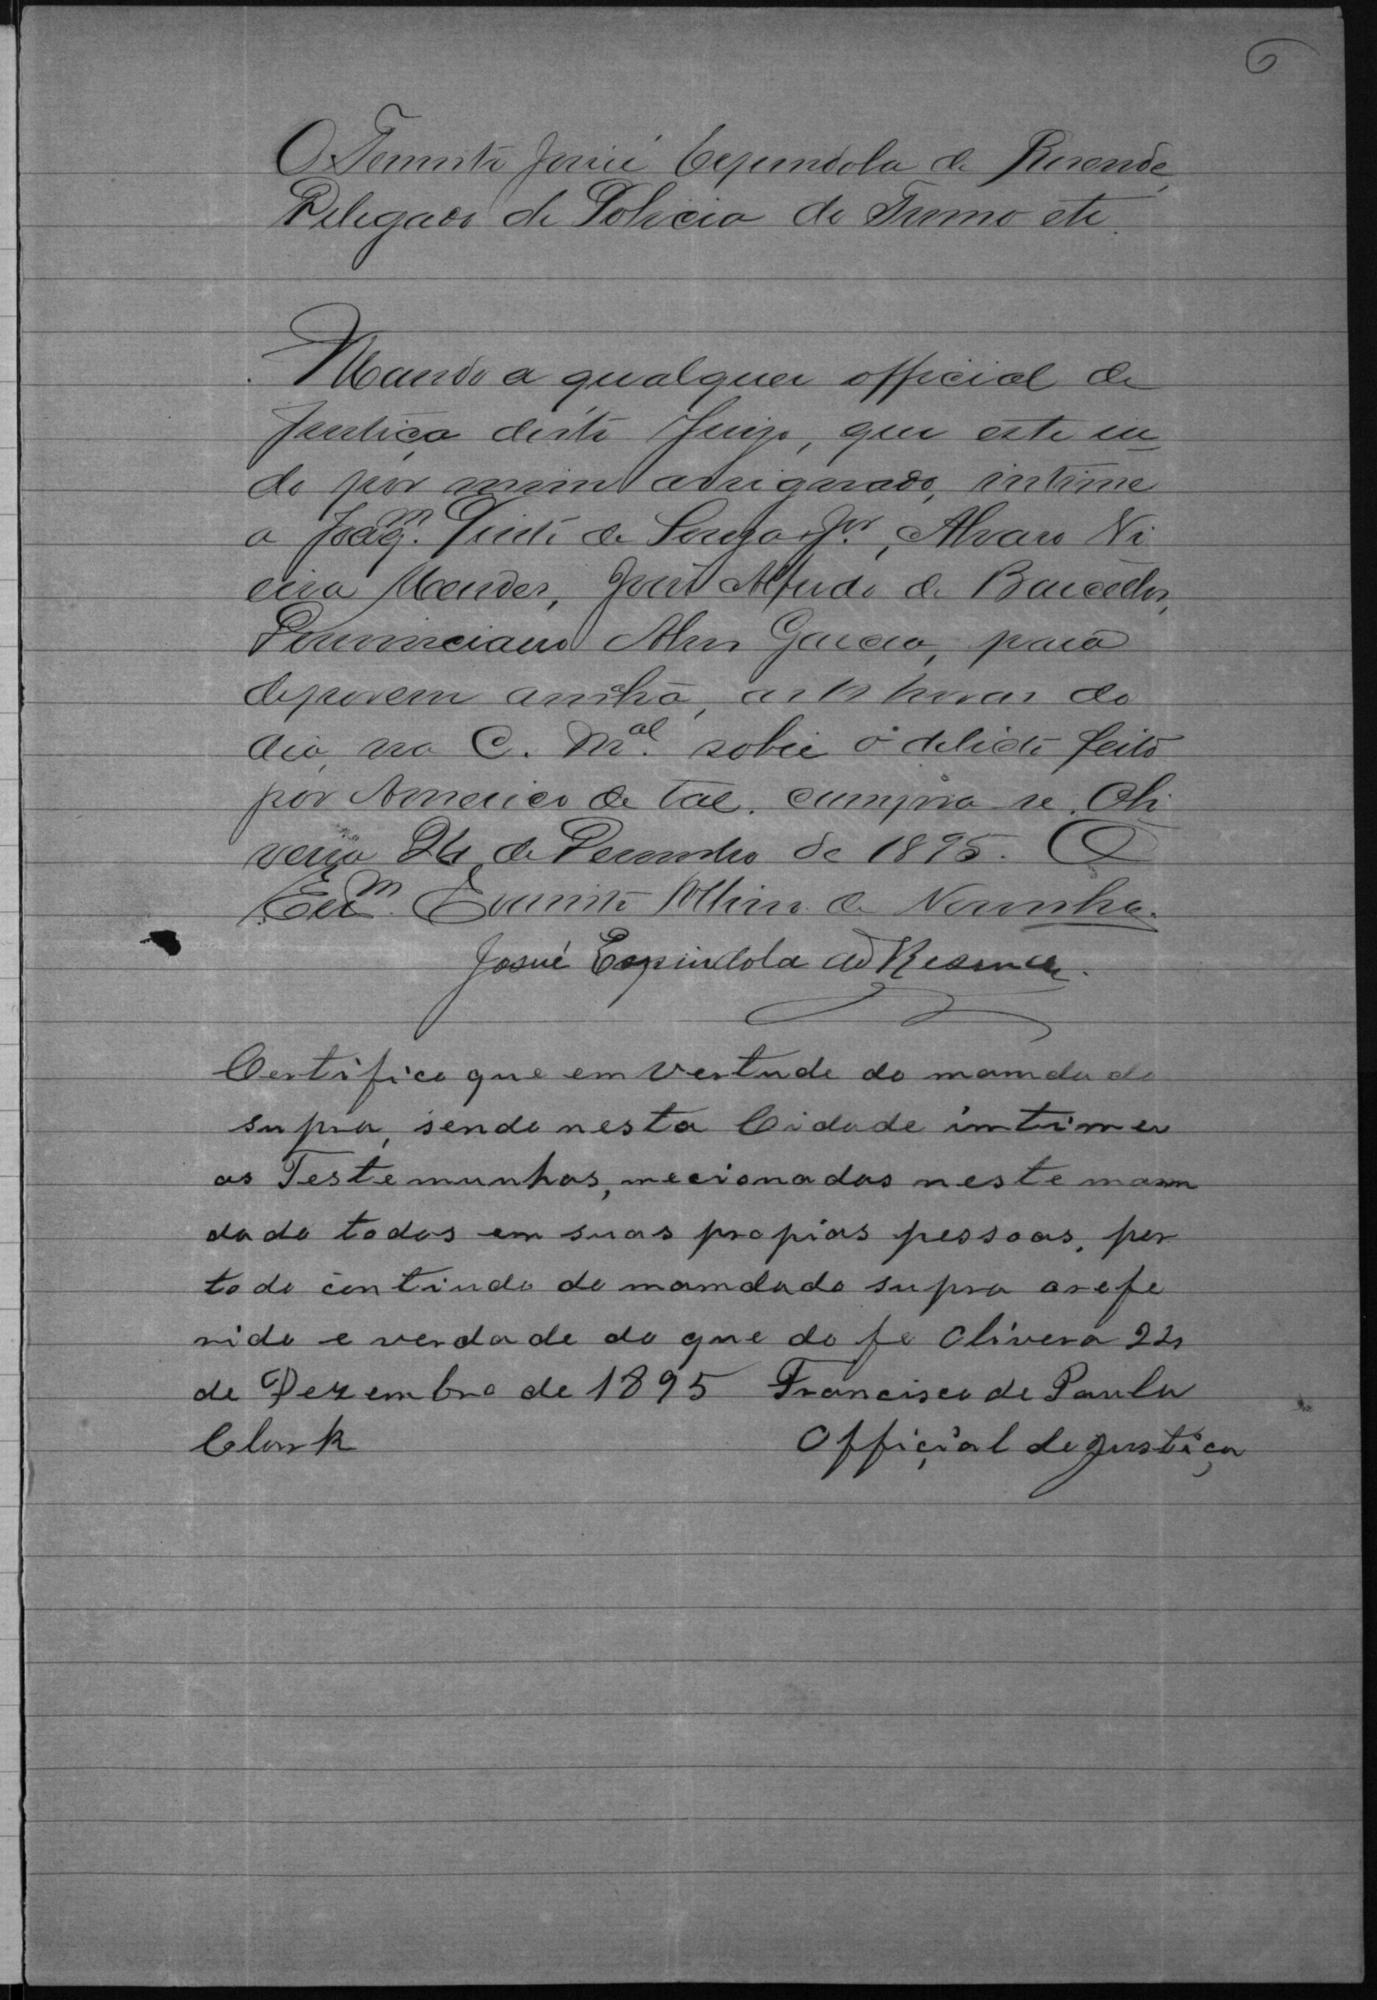 6
O Tenente Josué Espindola de Resende,
Delegado de Policia do Termo etc.
Mando a qualquer official de
Justiça deste Juizo, que este in
do por mim assignado, intime
a Joaqm. Pinto de Souza Jor., Alvaro Vi
eira Mendes, José Alfredo de Barcellos,
Provinciano Alves Garcia, para
deporem amhã, as 11 horas do
dia, na C. Mal. sobre o delicto feito
por Americo de tal. cumpra se. Oli
veira 24 de Dezembro de 1895. O
Escm. Evaristo de Noronha.
Josué Espindola de Resende.
Certifico que em vertude do mamdado
supra, sendo nesta Cidade intimei
as Testemunhas, mecionadas neste mam
dado todas em suas propias pessoas, per
todo contiudo do mamdado supra orefe
rido e verdade do que do fe Olivera 24
de Dezembro de 1895 Francisco de Paula
Clark Offiçial de justiça